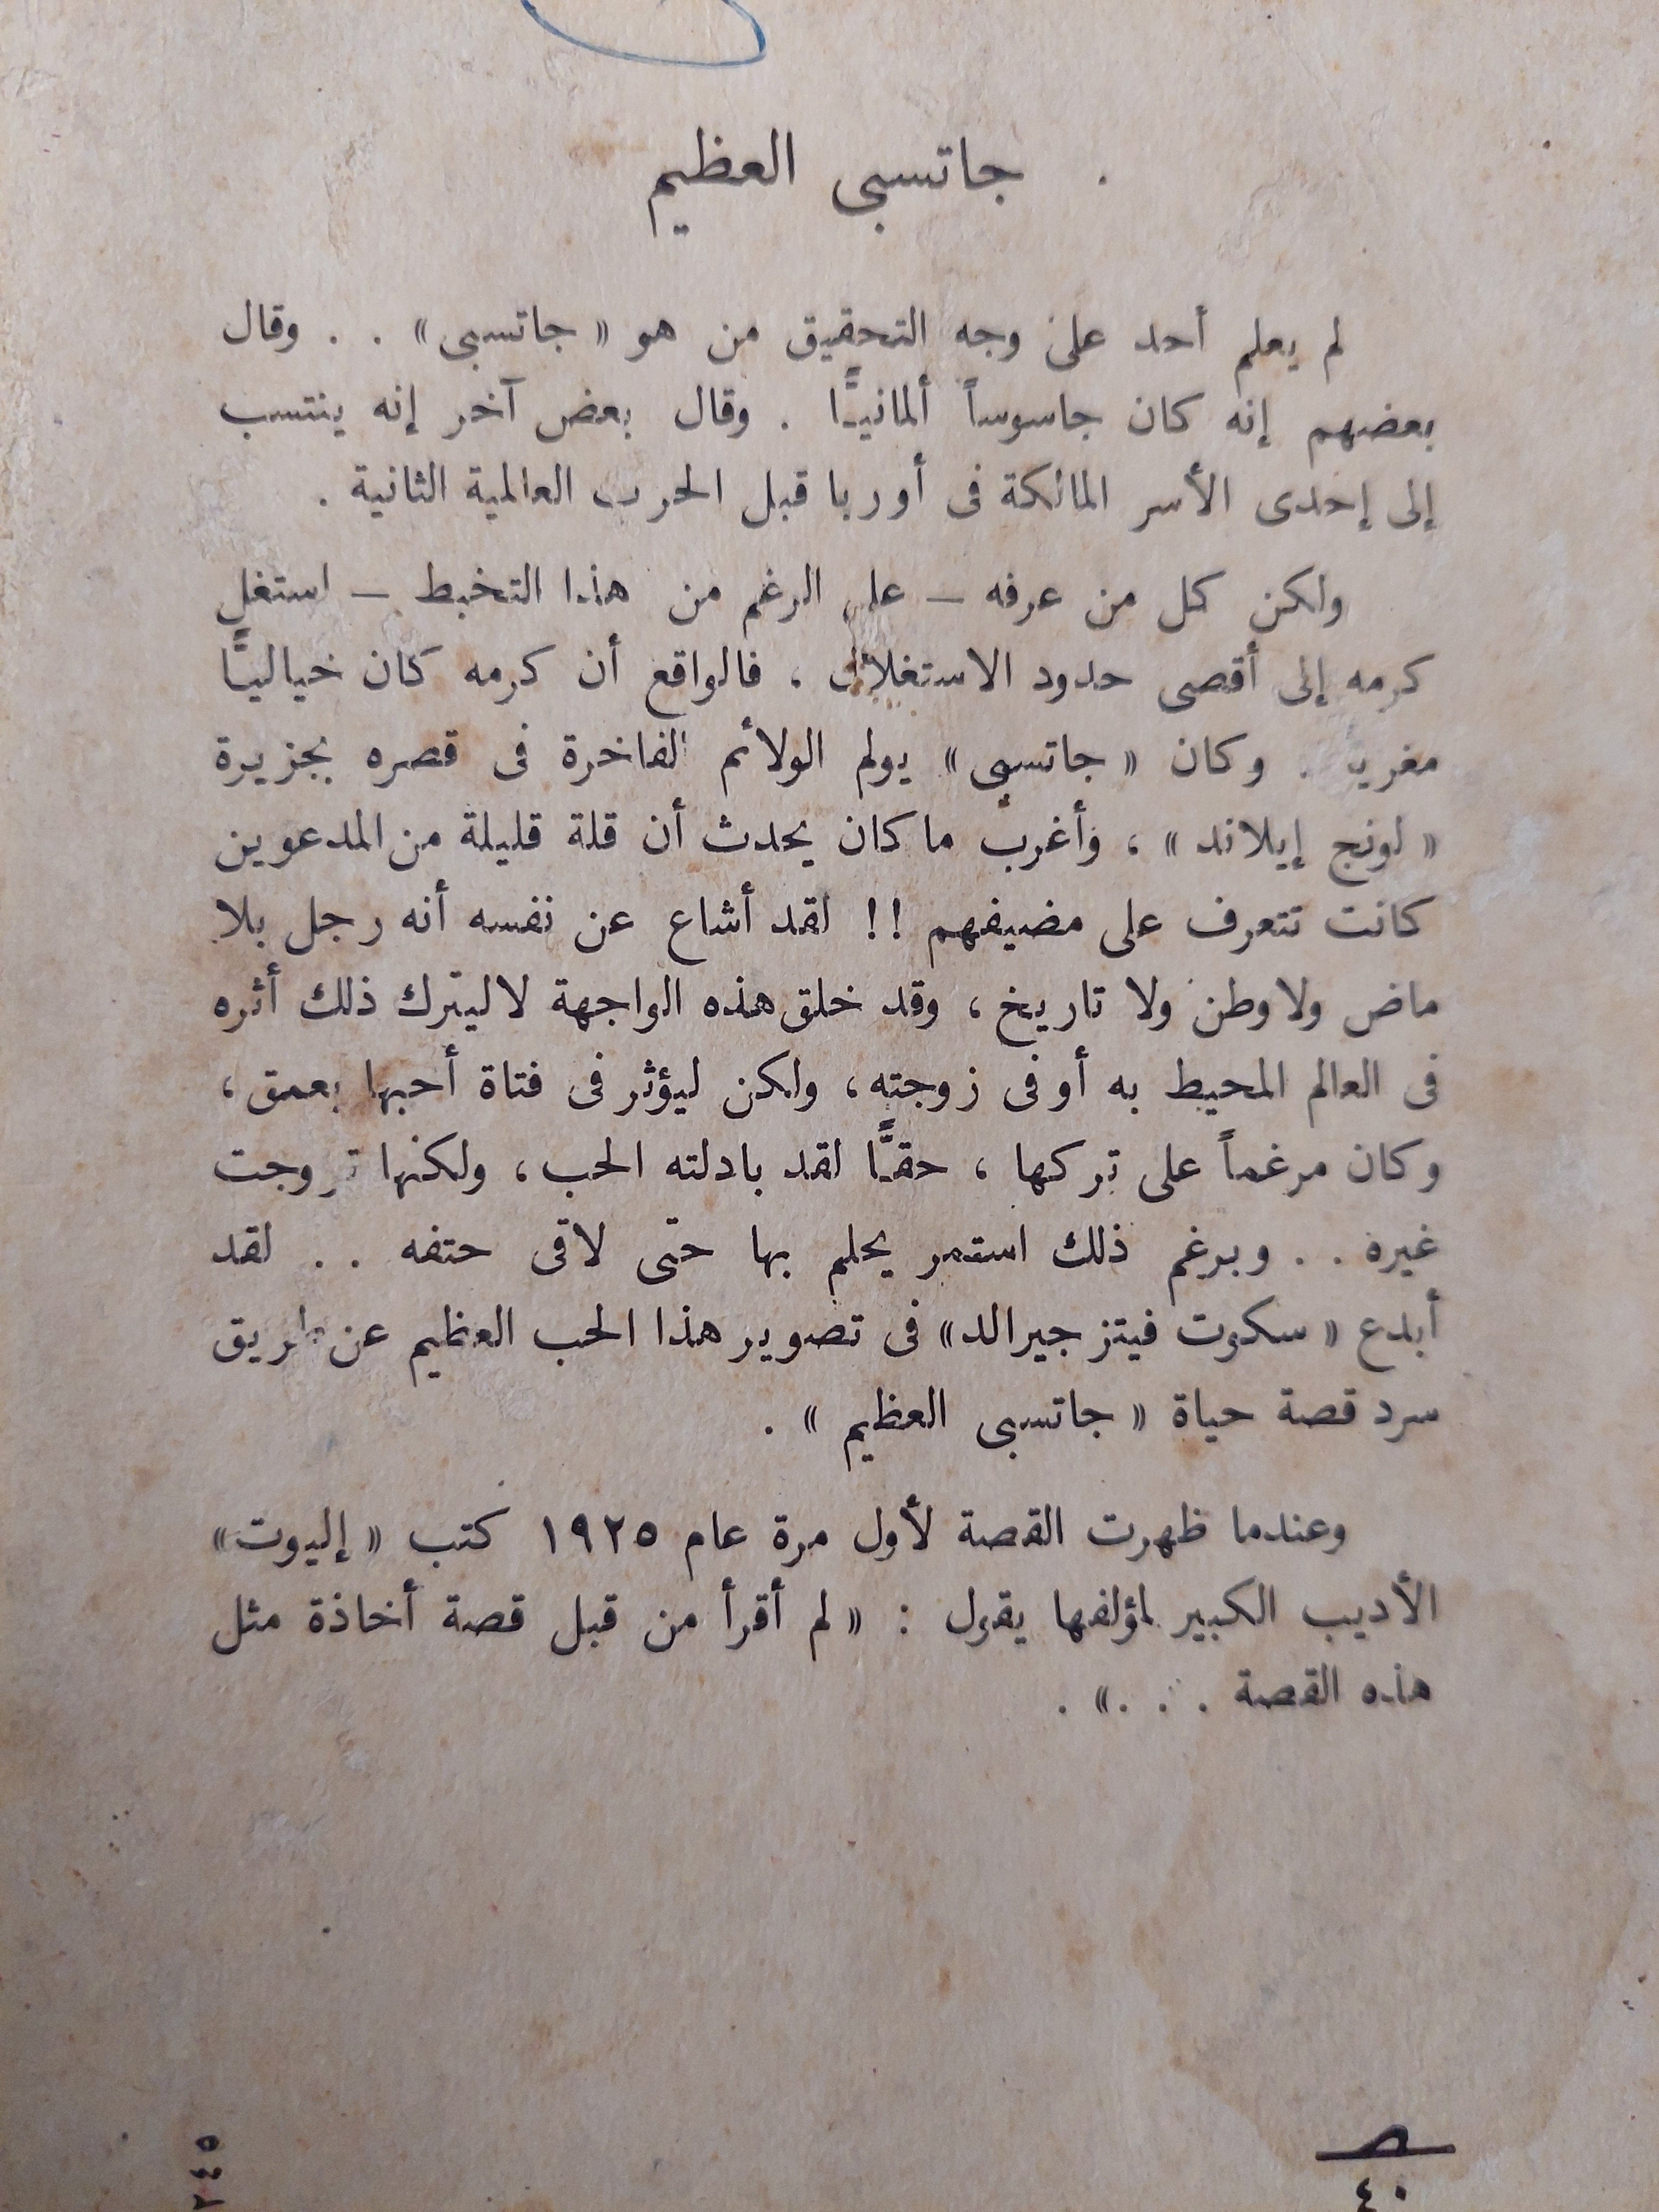 جاتسبى العظيم
لم يعلم أحد على وجه التحقيق من هو « جاتسبى » . . وقال
بعضهم إنه كان جاسوساً ألمانيًّا . وقال بعض آخر إنه ينتسب
إلى إحدى الأسر المالكة فى أوربا قبل الحرب العالمية الثانية .
ولكن كل من عرفه – على الرغم من هذا التخبط – استغل
كرمه إلى أقصى حدود الاستغلال ، فالواقع أن كرمه كان خياليًّا
. وكان « جاتسبى » يولم الولائم الفاخرة فى قصره بجزيرة
« لونج إيلاند » ، وأغرب ما كان يحدث أن قلة قليلة من المدعوين
كانت تتعرف على مضيفهم !! لقد أشاع عن نفسه أنه رجل بلا
ماض ولا وطن ولا تاريخ ، وقد خلق هذه الواجهة لا ليترك ذلك أثره
فى العالم المحيط به أو فى زوجته ، ولكن ليؤثر فى فتاة أحبها بعمق ،
وكان مرغماً على تركها ، حقًّا لقد بادلته الحب ، ولكنها تزوجت
غيره . . وبرغم ذلك استمر يحلم بها حتى لاقى حتفه . . لقد
أبدع « سكوت فيتز جيرالد » فى تصوير هذا الحب العظيم عن طريق
سرد قصة حياة « جاتسبى العظيم » .
وعندما ظهرت القصة لأول مرة عام ١٩٢٥ كتب « إليوت »
الأديب الكبير لمؤلفها يقول : « لم أقرأ من قبل قصة أخاذة مثل
هذه القصة . . . » .
٢٤٥
٤٠